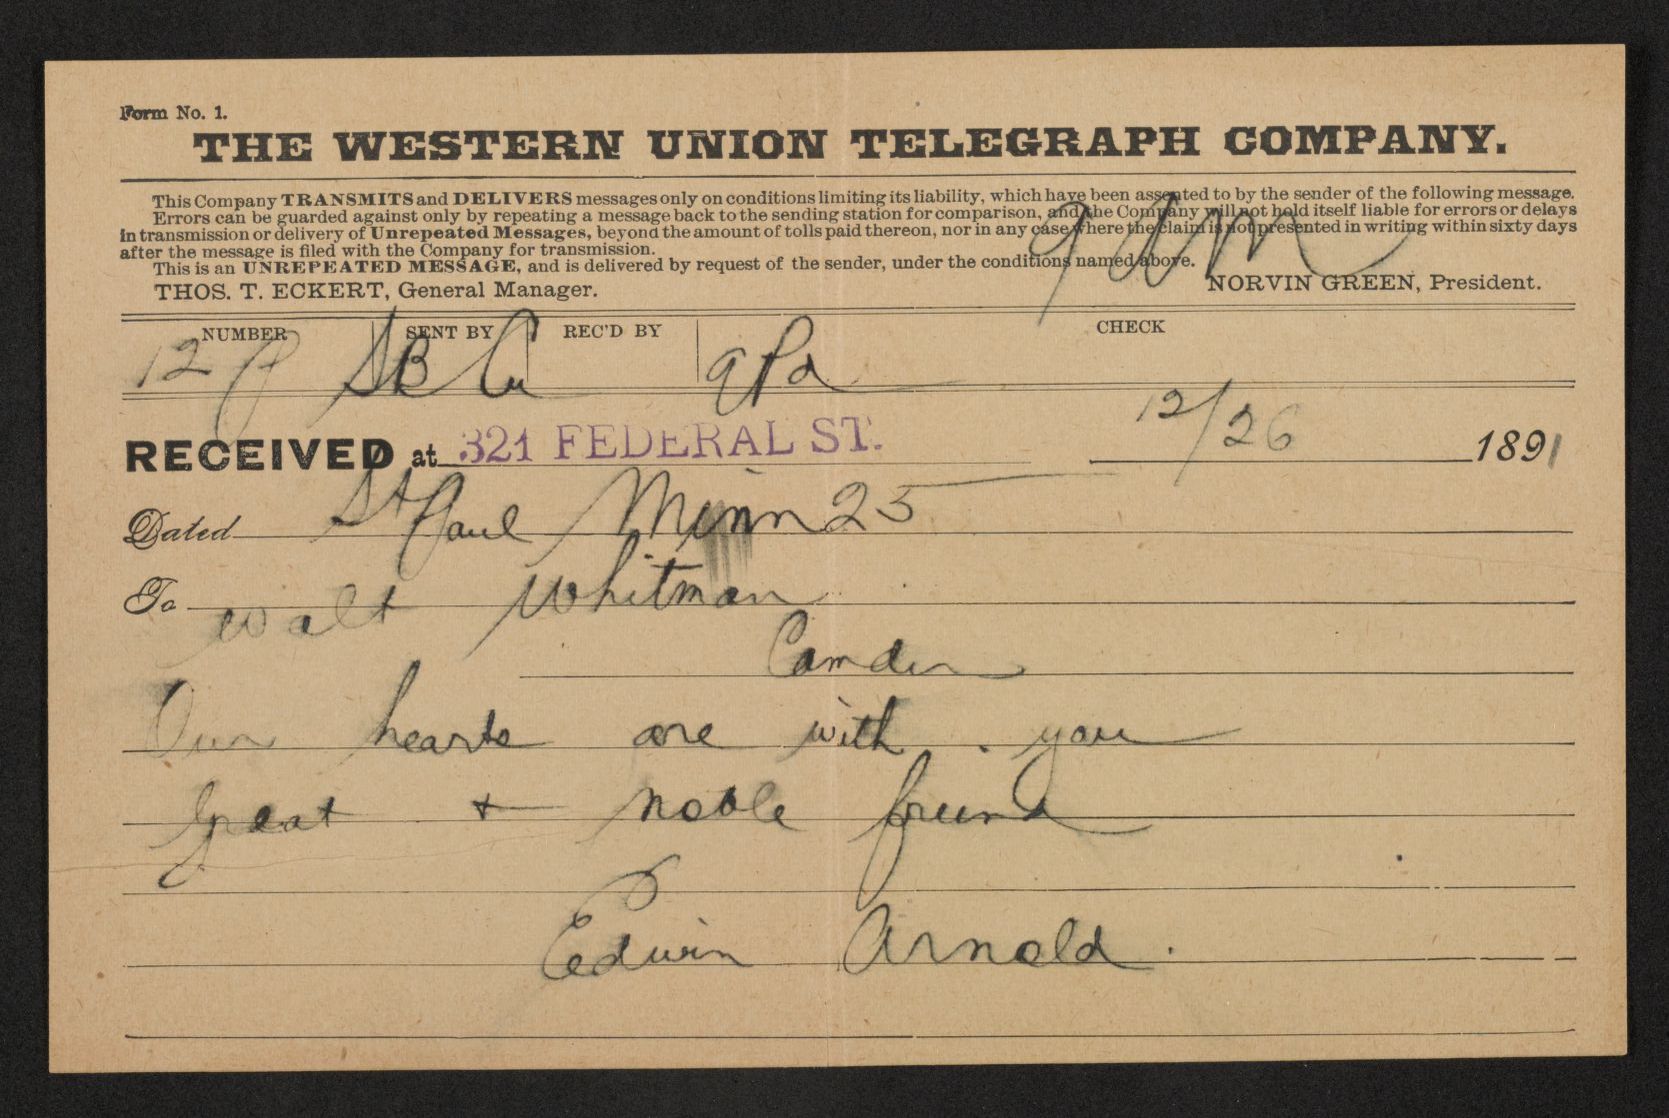 Form No. 1.
THE WESTERN UNION TELEGRAPH COMPANY.
This Company TRANSMITS and DELIVERS messages only on conditions limiting its liability, which have been assented to by the sender of the following message.
Errors can be guarded against only by repeating a message back to the sending station for comparison, and the Company will not hold itself liable for errors or delays
in transmission or delivery of Unrepeated Messages, beyond the amount of tolls paid thereon, nor in any case where the claim is not presented in writing within sixty days
after the message is filed with the Company for transmission.
This is an UNREPEATED MESSAGE, and is delivered by request of the sender, under the conditions named above.
9 AM
THOS. T. ECKERT, General Manager. NORVIN GREEN, President.
NUMBER SENT BY REC'D BY CHECK
12 SB 9 Pd
12/26
RECEIVED at 321 FEDERAL ST. 1891
Dated St Paul Minn 25
To Walt Whitman
Camden
Our hearts are with you
great + noble friend
Edwin Arnold.